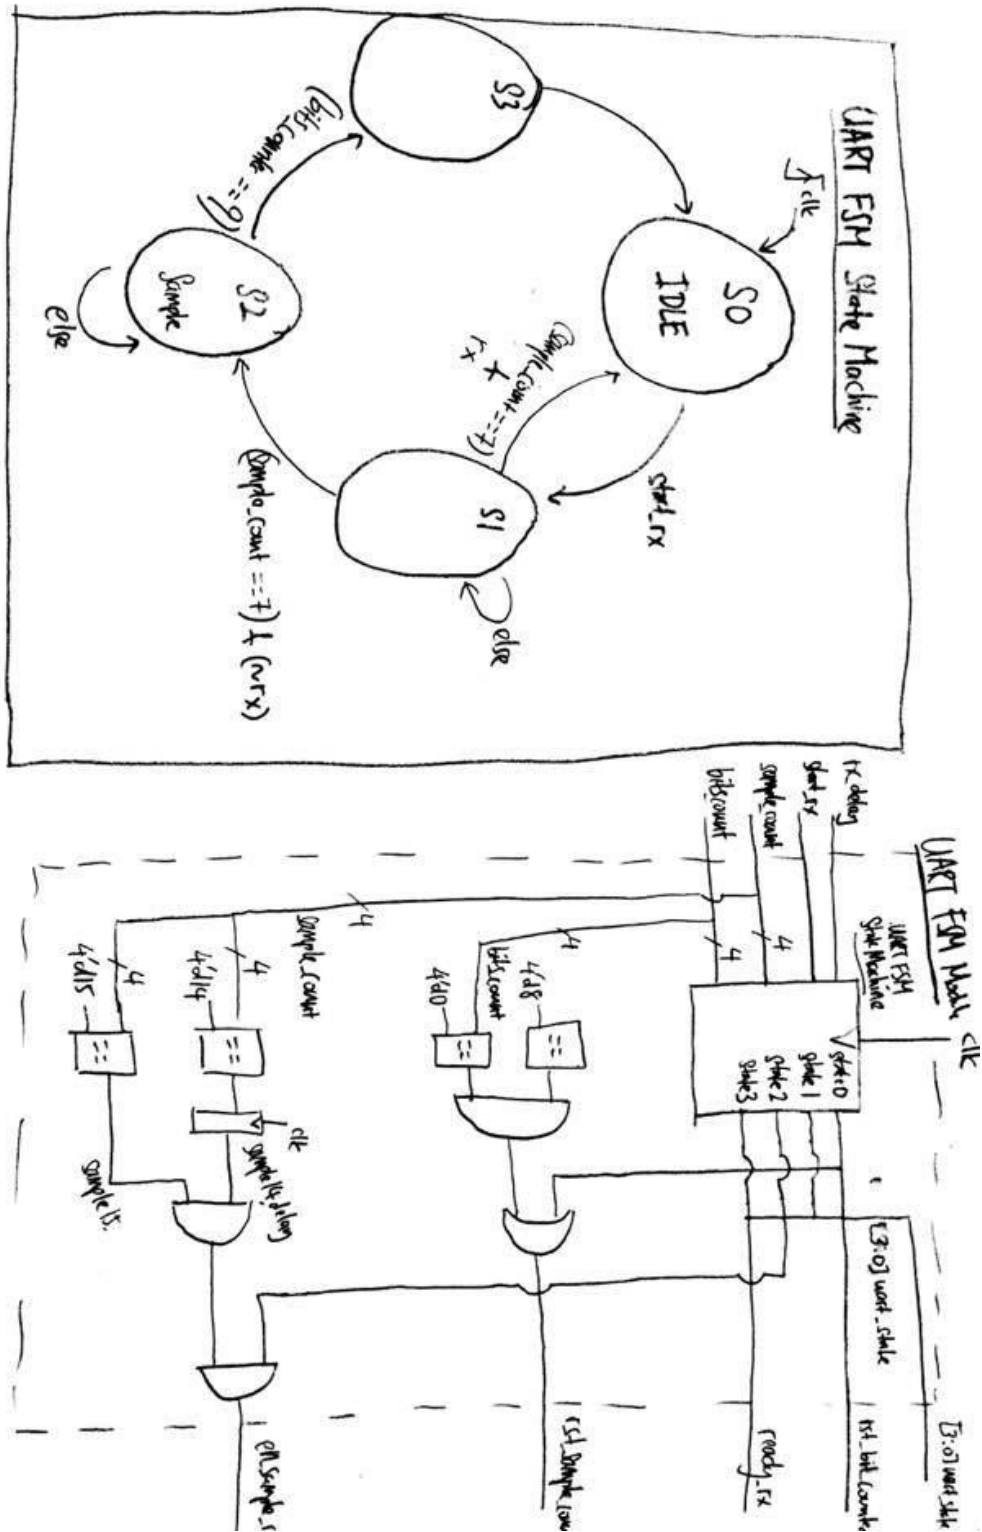 UART FSM State Machine
clk
S0
IDLE
start_rx
S1
else
(sample_count ==7)
rx
(sample_count ==7) & (~rx)
S2
Sample
else
(bits_count ==9)
S3
UART FSM Module
clk
rx delay
start_rx
sample count
bitscount
UART FSM
State Machine
state0
state1
state2
state3
4
4
4
4
4
4
4'd8
4'd0
bitscount
sample_count
4'd14
4'd15
==
==
==
==
clk
sample14.delay
sample15.
[3:0] uart_state
[3:0] uart_state
rst_bit_counte
ready_rx
rst_sample_coun
en_sample_r